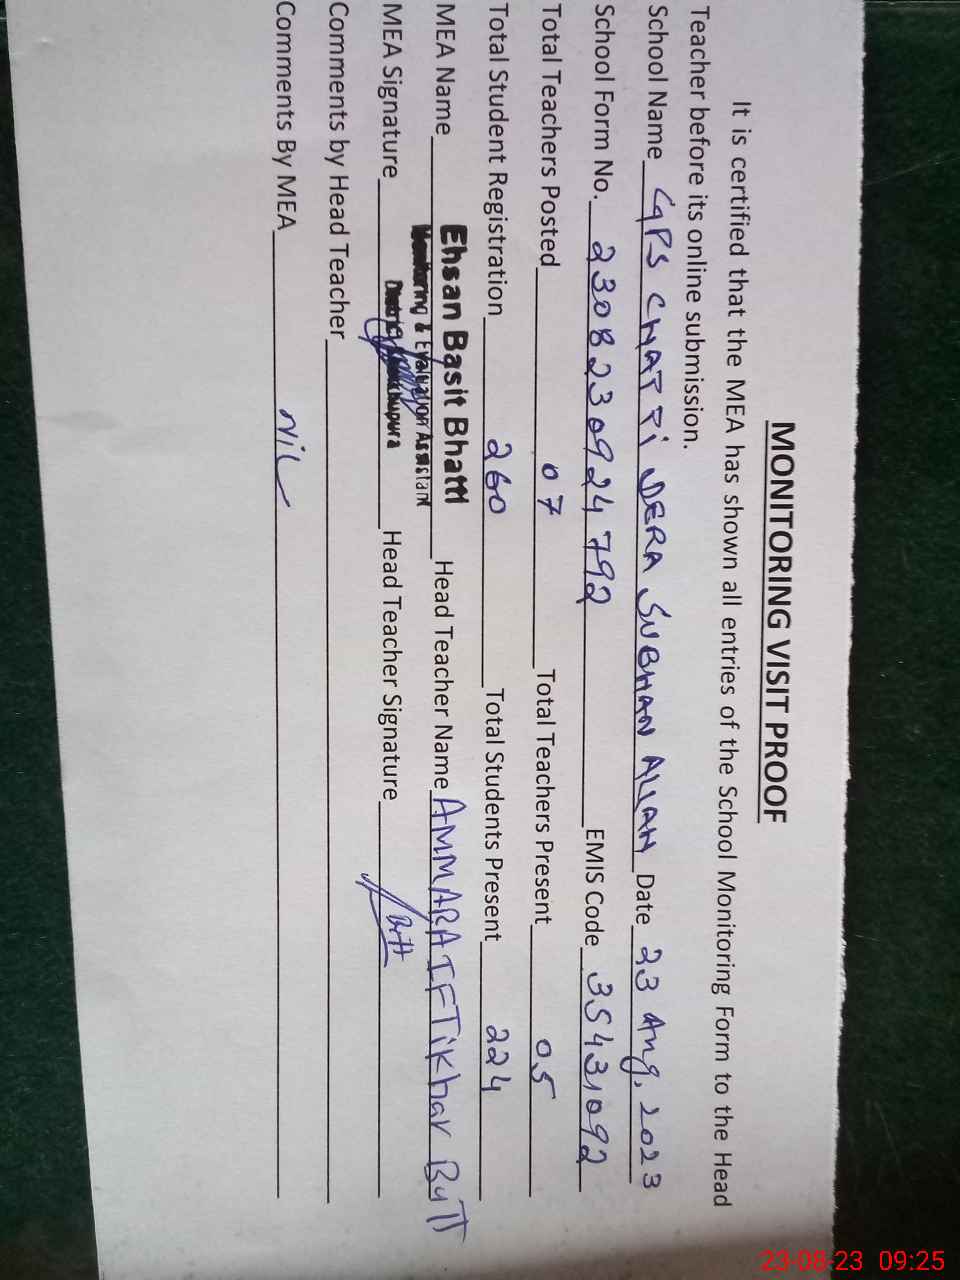 MONITORING VISIT PROOF
It is certified that the MEA has shown all entries of the School Monitoring Form to the Head
Teacher before its online submission.
School Name GPS CHATTi DERA SUBHAN ALIAN Date 23 Aug, 2023
School Form No. 23082330924792 EMIS Code 35431092
Total Teachers Posted 07 Total Teachers Present 05
Total Student Registration 260 Total Students Present 224
MEA Name Ehsan Basit Bhatti Head Teacher Name AMMARA IFTikhar BuTT
Monitoring & Evaluation Assistant
MEA Signature District Sheikhupura Head Teacher Signature Butt
Comments by Head Teacher
Comments By MEA NiL
23-08-23 09:25